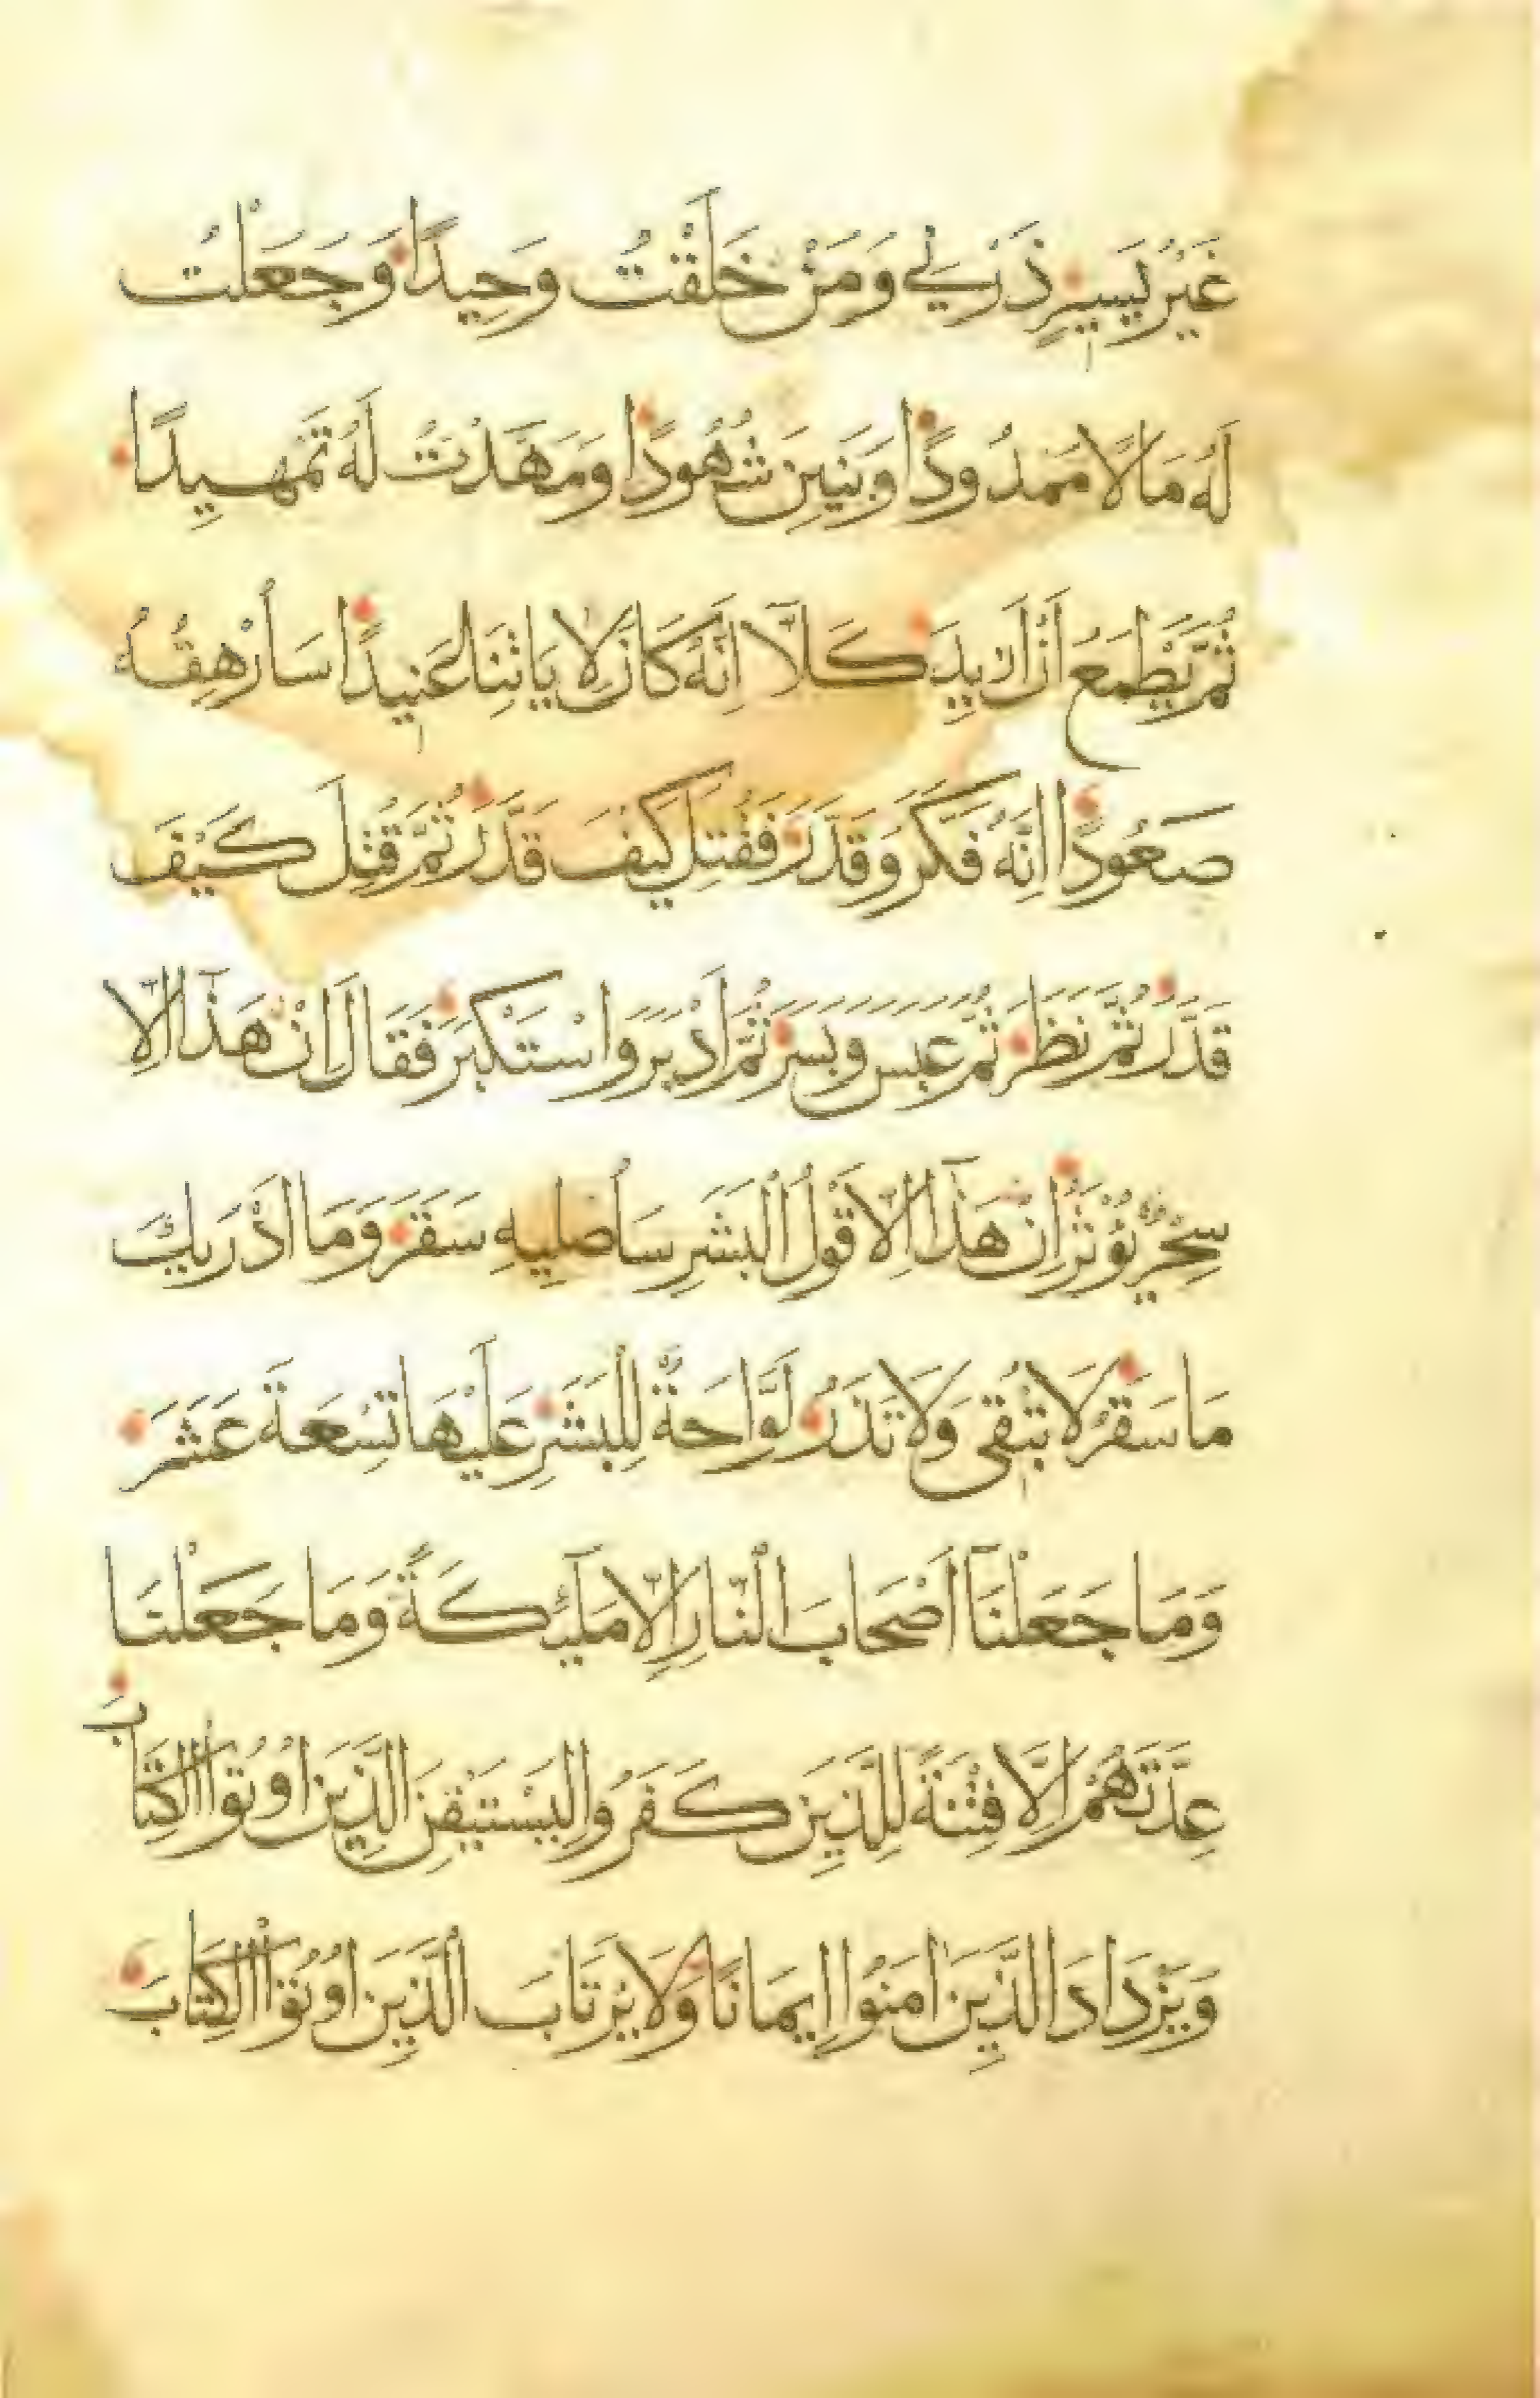 غَيْرُ يَسِيرٍ ذَرْنِي وَمَنْ خَلَقْتُ وَحِيدًا وَجَعَلْتُ
لَهُ مَالًا مَمْدُودًا وَبَنِينَ شُهُودًا وَمَهَّدْتُ لَهُ تَمْهِيدًا
ثُمَّ يَطْمَعُ أَنْ أَزِيدَ كَلَّا إِنَّهُ كَانَ لِآيَاتِنَا عَنِيدًا سَأُرْهِقُهُ
صَعُودًا إِنَّهُ فَكَّرَ وَقَدَّرَ فَقُتِلَ كَيْفَ قَدَّرَ ثُمَّ قُتِلَ كَيْفَ
قَدَّرَ ثُمَّ نَظَرَ ثُمَّ عَبَسَ وَبَسَرَ ثُمَّ أَدْبَرَ وَاسْتَكْبَرَ فَقَالَ إِنْ هَذَا إِلَّا
سِحْرٌ يُؤْثَرُ إِنْ هَذَا إِلَّا قَوْلُ الْبَشَرِ سَأُصْلِيهِ سَقَرَ وَمَا أَدْرَيكَ
مَا سَقَرُ لَا تُبْقِي وَلَا تَذَرُ لَوَّاحَةٌ لِلْبَشَرِ عَلَيْهَا تِسْعَةَ عَشَرَ
وَمَا جَعَلْنَا أَصْحَابَ النَّارِ إِلَّا مَلَئِكَةً وَمَا جَعَلْنَا
عِدَّتَهُمْ إِلَّا فِتْنَةً لِلَّذِينَ كَفَرُوا لِيَسْتَيْقِنَ الَّذِينَ أُوتُوا الْكِتَابَ
وَيَزْدَادَ الَّذِينَ آمَنُوا إِيمَانًا وَلَا يَرْتَابَ الَّذِينَ أُوتُوا الْكِتَابَ